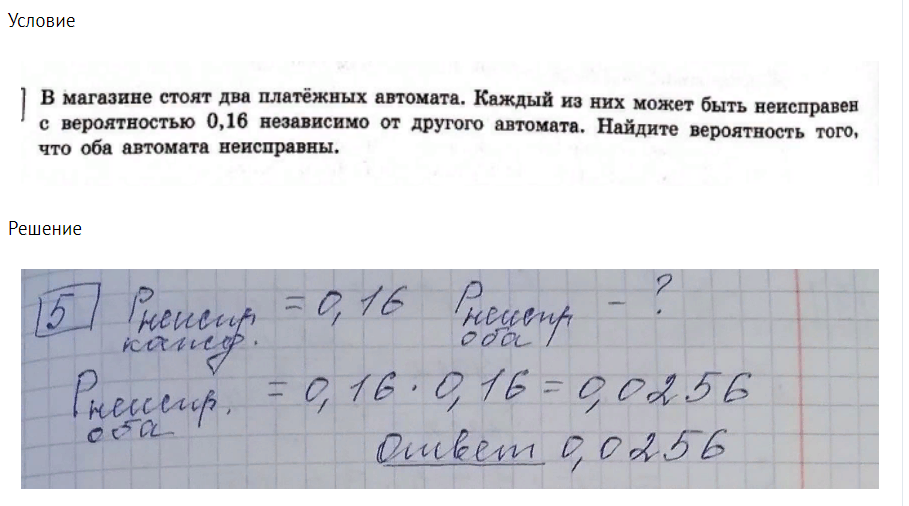 Условие
В магазине стоят два платёжных автомата. Каждый из них может быть неисправен
с вероятностью 0,16 независимо от другого автомата. Найдите вероятность того,
что оба автомата неисправны.
Решение
5 Pнеиспр кажд. = 0,16 Pнеиспр оба - ?
Pнеиспр. оба = 0,16 · 0,16 = 0,0256
Ответ 0,0256